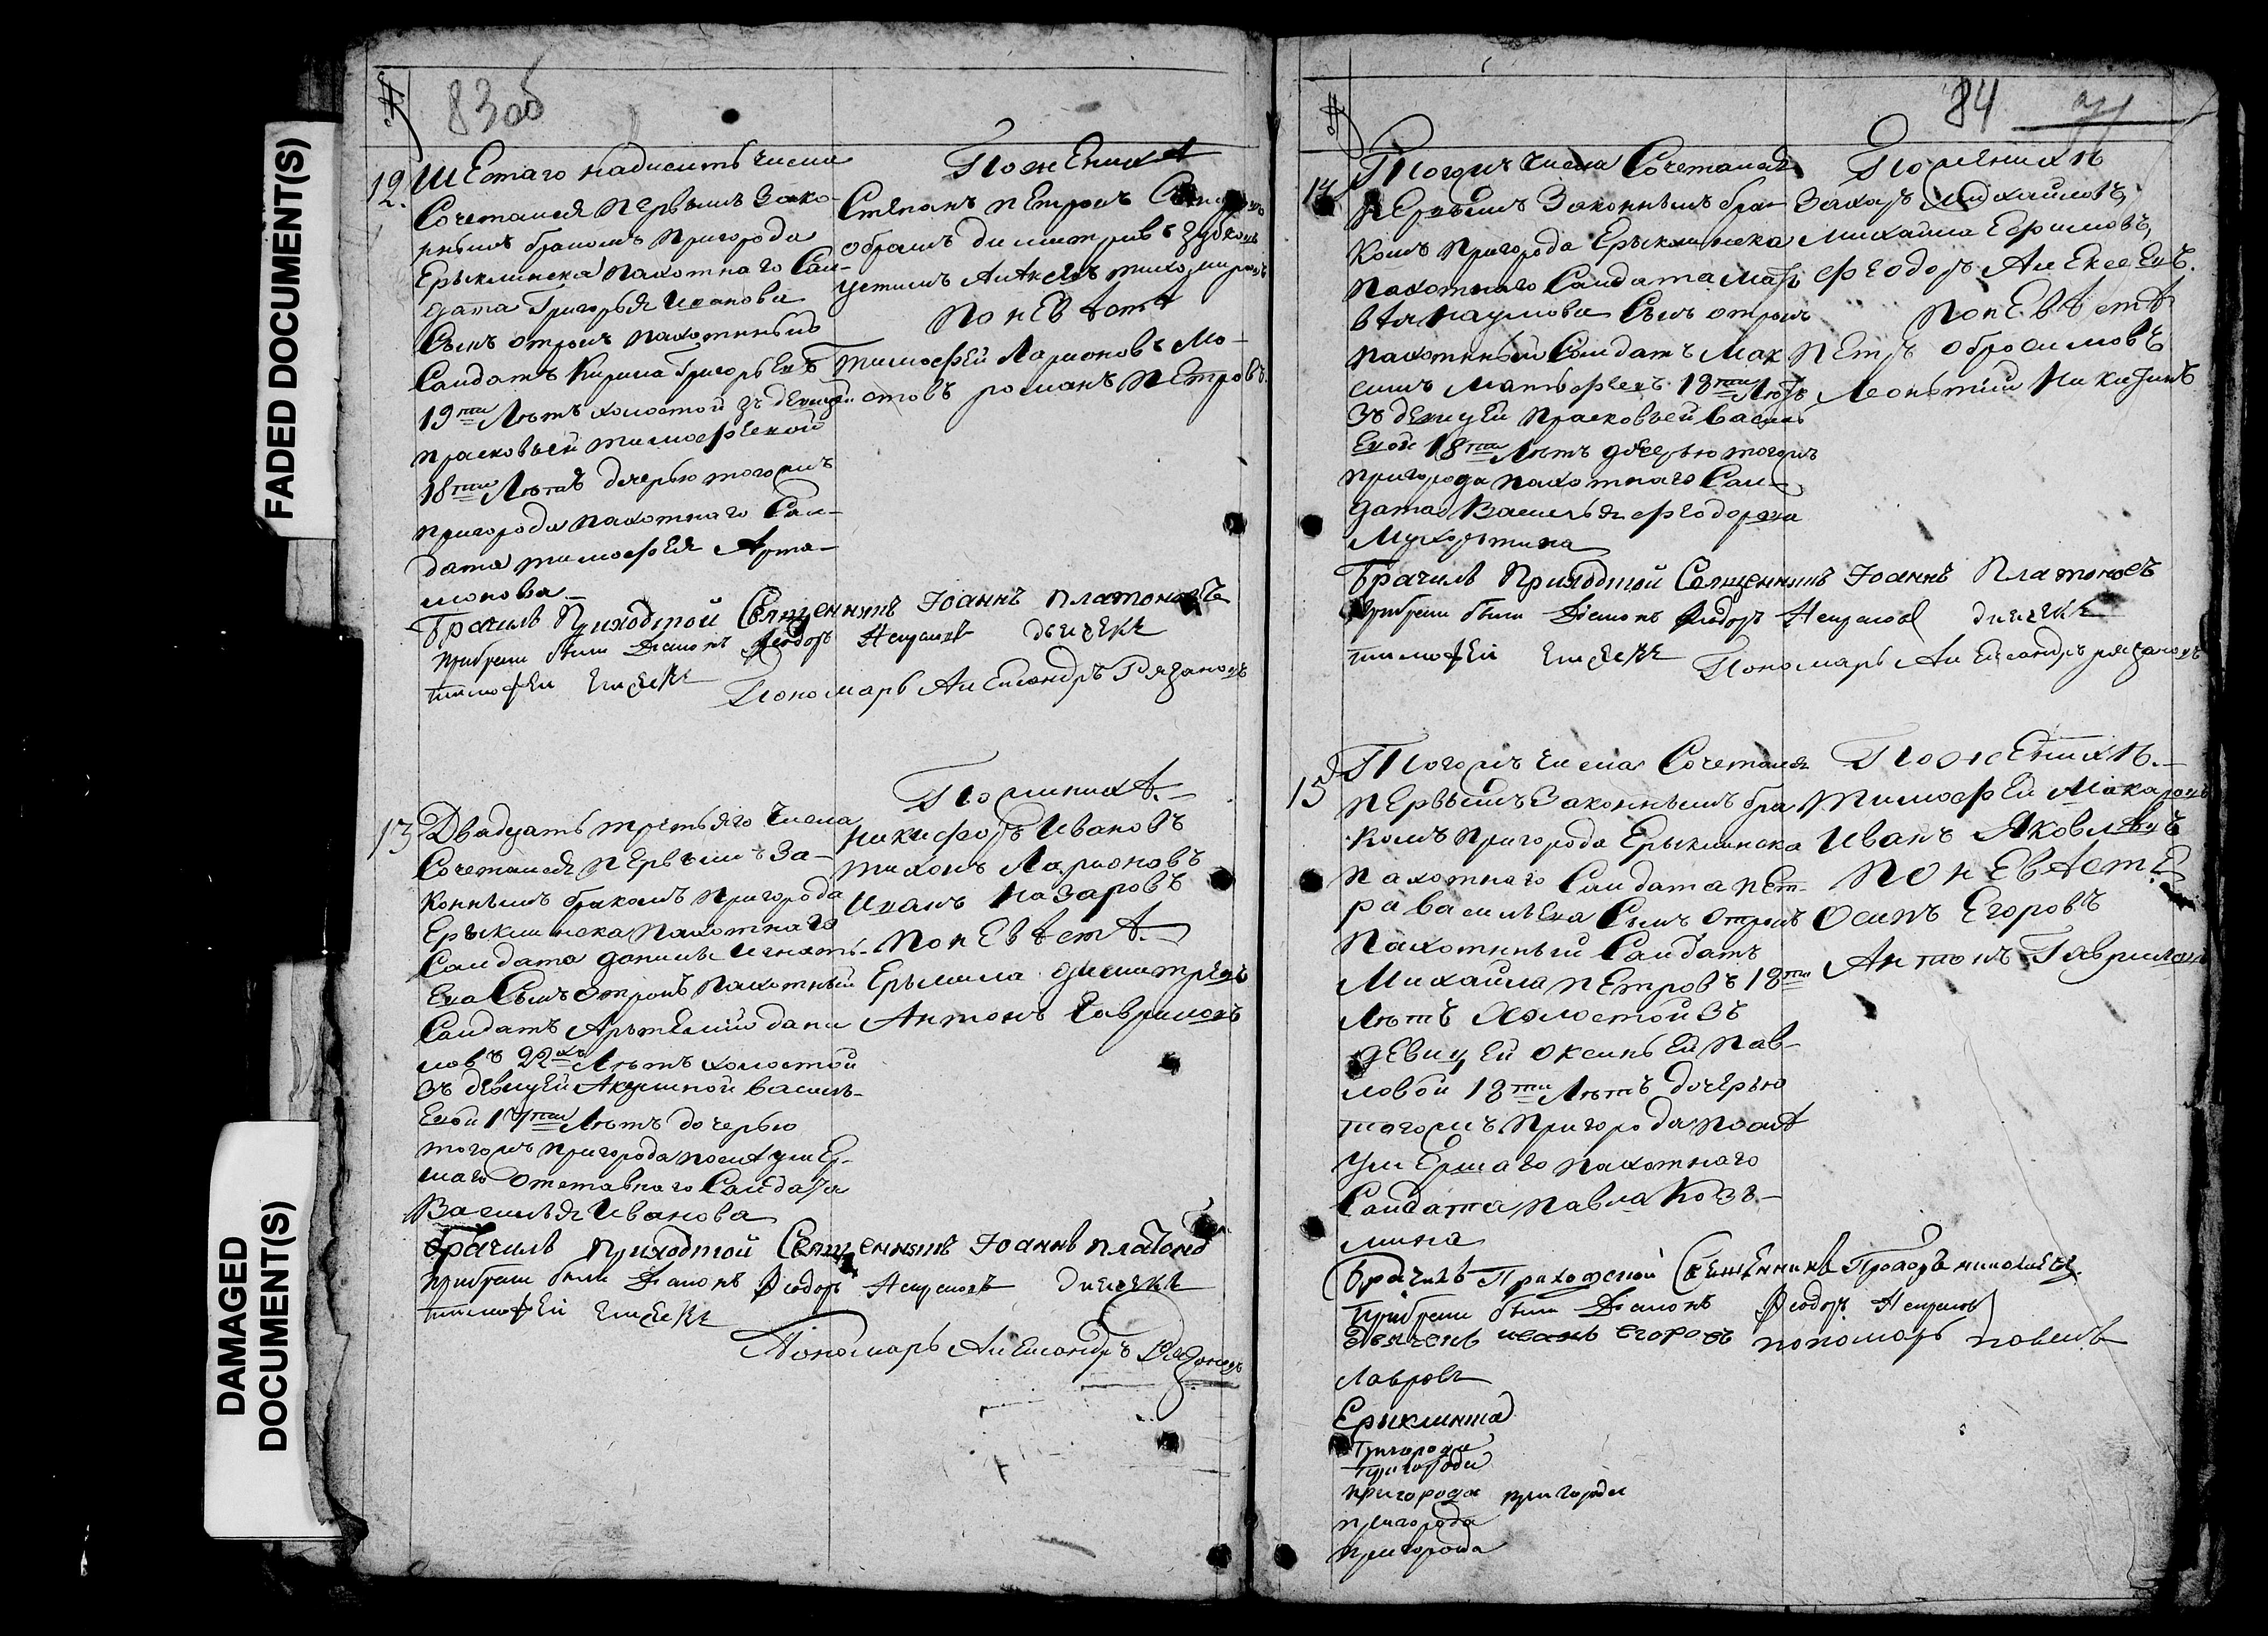 FADED DOCUMENT(S)
DAMAGED
DOCUMENT(S)
№
83об
12.
Шестаго надесить числа
Сочетался первымъ зако-
ннымъ бракомъ пригорода
Ерыклинска пахотнаго Сал-
дата Григорья Иванова
Сынъ отрокъ пахотныхъ
Салдатъ Кирила Григорьевъ
19ти лѣтъ холостой зъ девицей
прасковьей тимофеевой
18ти лѣтъ дочерью тогожъ
пригорода пахотнаго Сал-
дата тимофея Арта-
монова
По женихѣ
Степанъ петровъ
обрамъ димитривъ зубковъ
устинъ тихомировъ
по невѣстѣ
тимофей Ларионовъ Мо-
стовъ романъ петровъ
Брачилъ Приходской Священникъ Іоаннъ Платоновъ
прибраки были Діаконъ Феодоръ
тимофей Пономарь Александръ Рязановъ
13
Двадцать третьяго Числа
Сочетался первымъ За-
коннымъ бракомъ пригорода
Ерыклинска пахотнаго
Салдата данилы Игнать-
ева Сынъ отрокъ пахотный
Салдатъ дани
ловъ 22хъ лѣтъ холостой
зъ девицей Акулиной василь-
евой 17ти лѣтъ дочерью
тогожъ пригорода послѣ умер-
шаго отставнаго Салдата
Василья Иванова
По женихѣ.
Никифоръ Ивановъ
тихонъ Ларионовъ
Иванъ Назаровъ
по невѣстѣ.
Ермила димитревъ
Антонъ Гавриловъ
Брачилъ приходской Священникъ Іоаннъ платоно
прибраки были Діаконъ Феодоръ
тимофей
Пономарь Александръ Рязановъ
№
84
14
Тогожъ числа Сочетался
первымъ Законнымъ бра-
комъ пригорода Ерыклинска
пахотнаго Салдата Мат
вѣя наумова Сынъ отрокъ
пахотный Салдатъ Мак
симъ Матьфеевъ 18ти лѣтъ
зъ девицей прасковьей Василь
евой 18ти лѣтъ дочерью тогожъ
пригорода пахотнаго Сал-
дата Василья феодорова
По женихѣ
Захаръ Михайловъ
михаила Ефимовъ
феодоръ Алексеевъ.
по невѣстѣ
петръ обросимовъ
Леонътій Никитинъ
Брачилъ Приходской Священникъ Іоаннъ Платоновъ
прибраки были Діаконъ Феодоръ
тимофей Пономарь Александръ рязановъ
15
Тогожъ числа Сочетался
первымъ Законнымъ бра
комъ пригорода Ерыклинска
пахотнаго Салдата пет-
ра васильева Сынъ отрокъ
пахотный Салдатъ
Михайла петровъ 18ти
лѣтъ Холостой зъ
девицей оксиньей пав-
ловой 18ти лѣтъ дочерью
тогожъ пригорода послѣ
умершаго пахотнаго
Салдата павла Козь-
мина
По женихѣ.
тимофей Макаровъ
Иванъ Яковлевъ
по невѣстѣ
Осипъ Егоровъ
Антонъ Гавриловъ
Брачилъ Приходской Священникъ Прохоръ николаевъ
прибраки были Діаконъ Феодоръ
дьячекъ иванъ егоровъ пономарь павелъ
Лавровъ
Ерыклинска
Пригорода
пригорода
пригорода пригорода
пригорода
пригорода